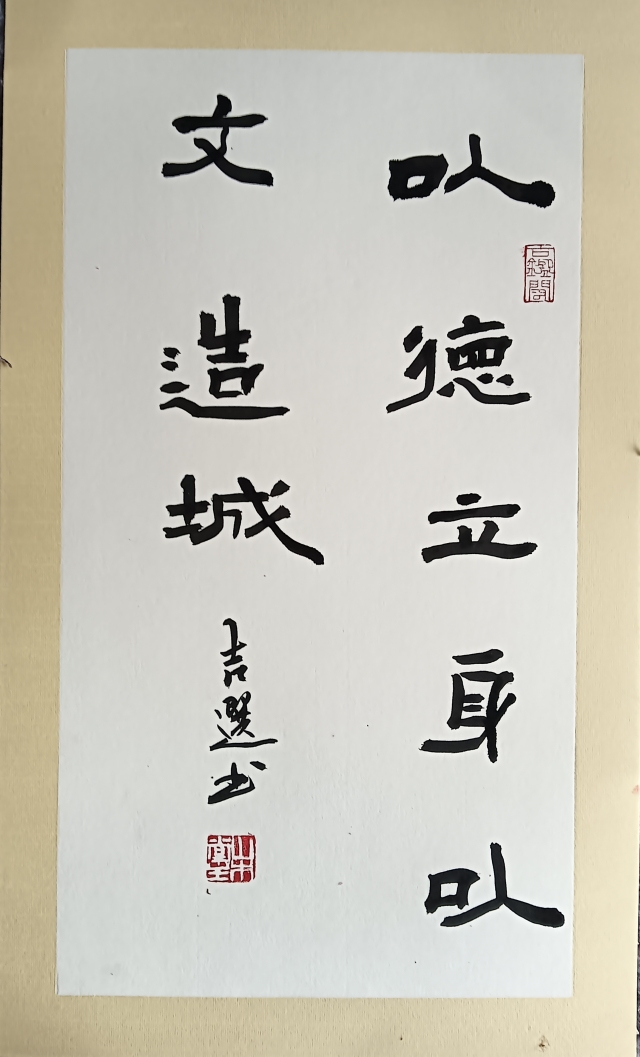 以德立身以
文造城
吉選书